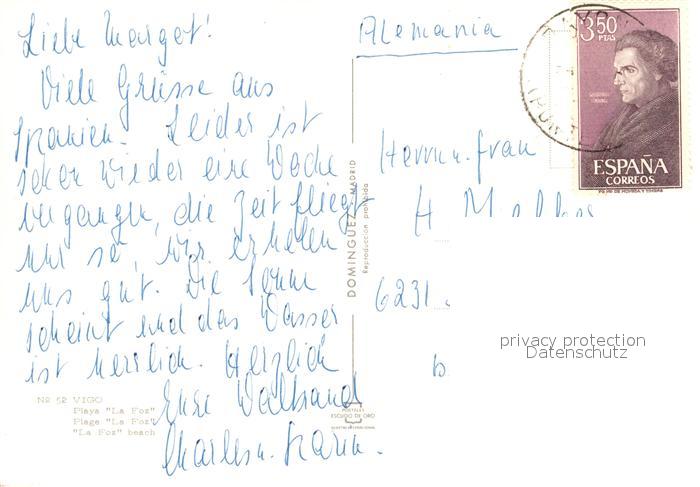 Liebe Margot!
Viele Grüsse aus
Spanien. Leider ist
schon wieder eine Woche
vergangen, die Zeit fliegt
nur so, wir erholen
uns gut. Die Sonne
scheint und das Wasser
ist herrlich. Herzlich
Eure Waltraud
Charles u. Karin.
Alemania
Herrn u. Frau
H.
6231
3,50
PTAS
ESPAÑA
CORREOS
DOMINGUEZ - MADRID
Reproducción prohibida
POSTALES
ESCUDO DE ORO
Nº 52 VIGO
Playa "La Foz"
Plage "La Foz"
"La Foz" beach
privacy protection
Datenschutz